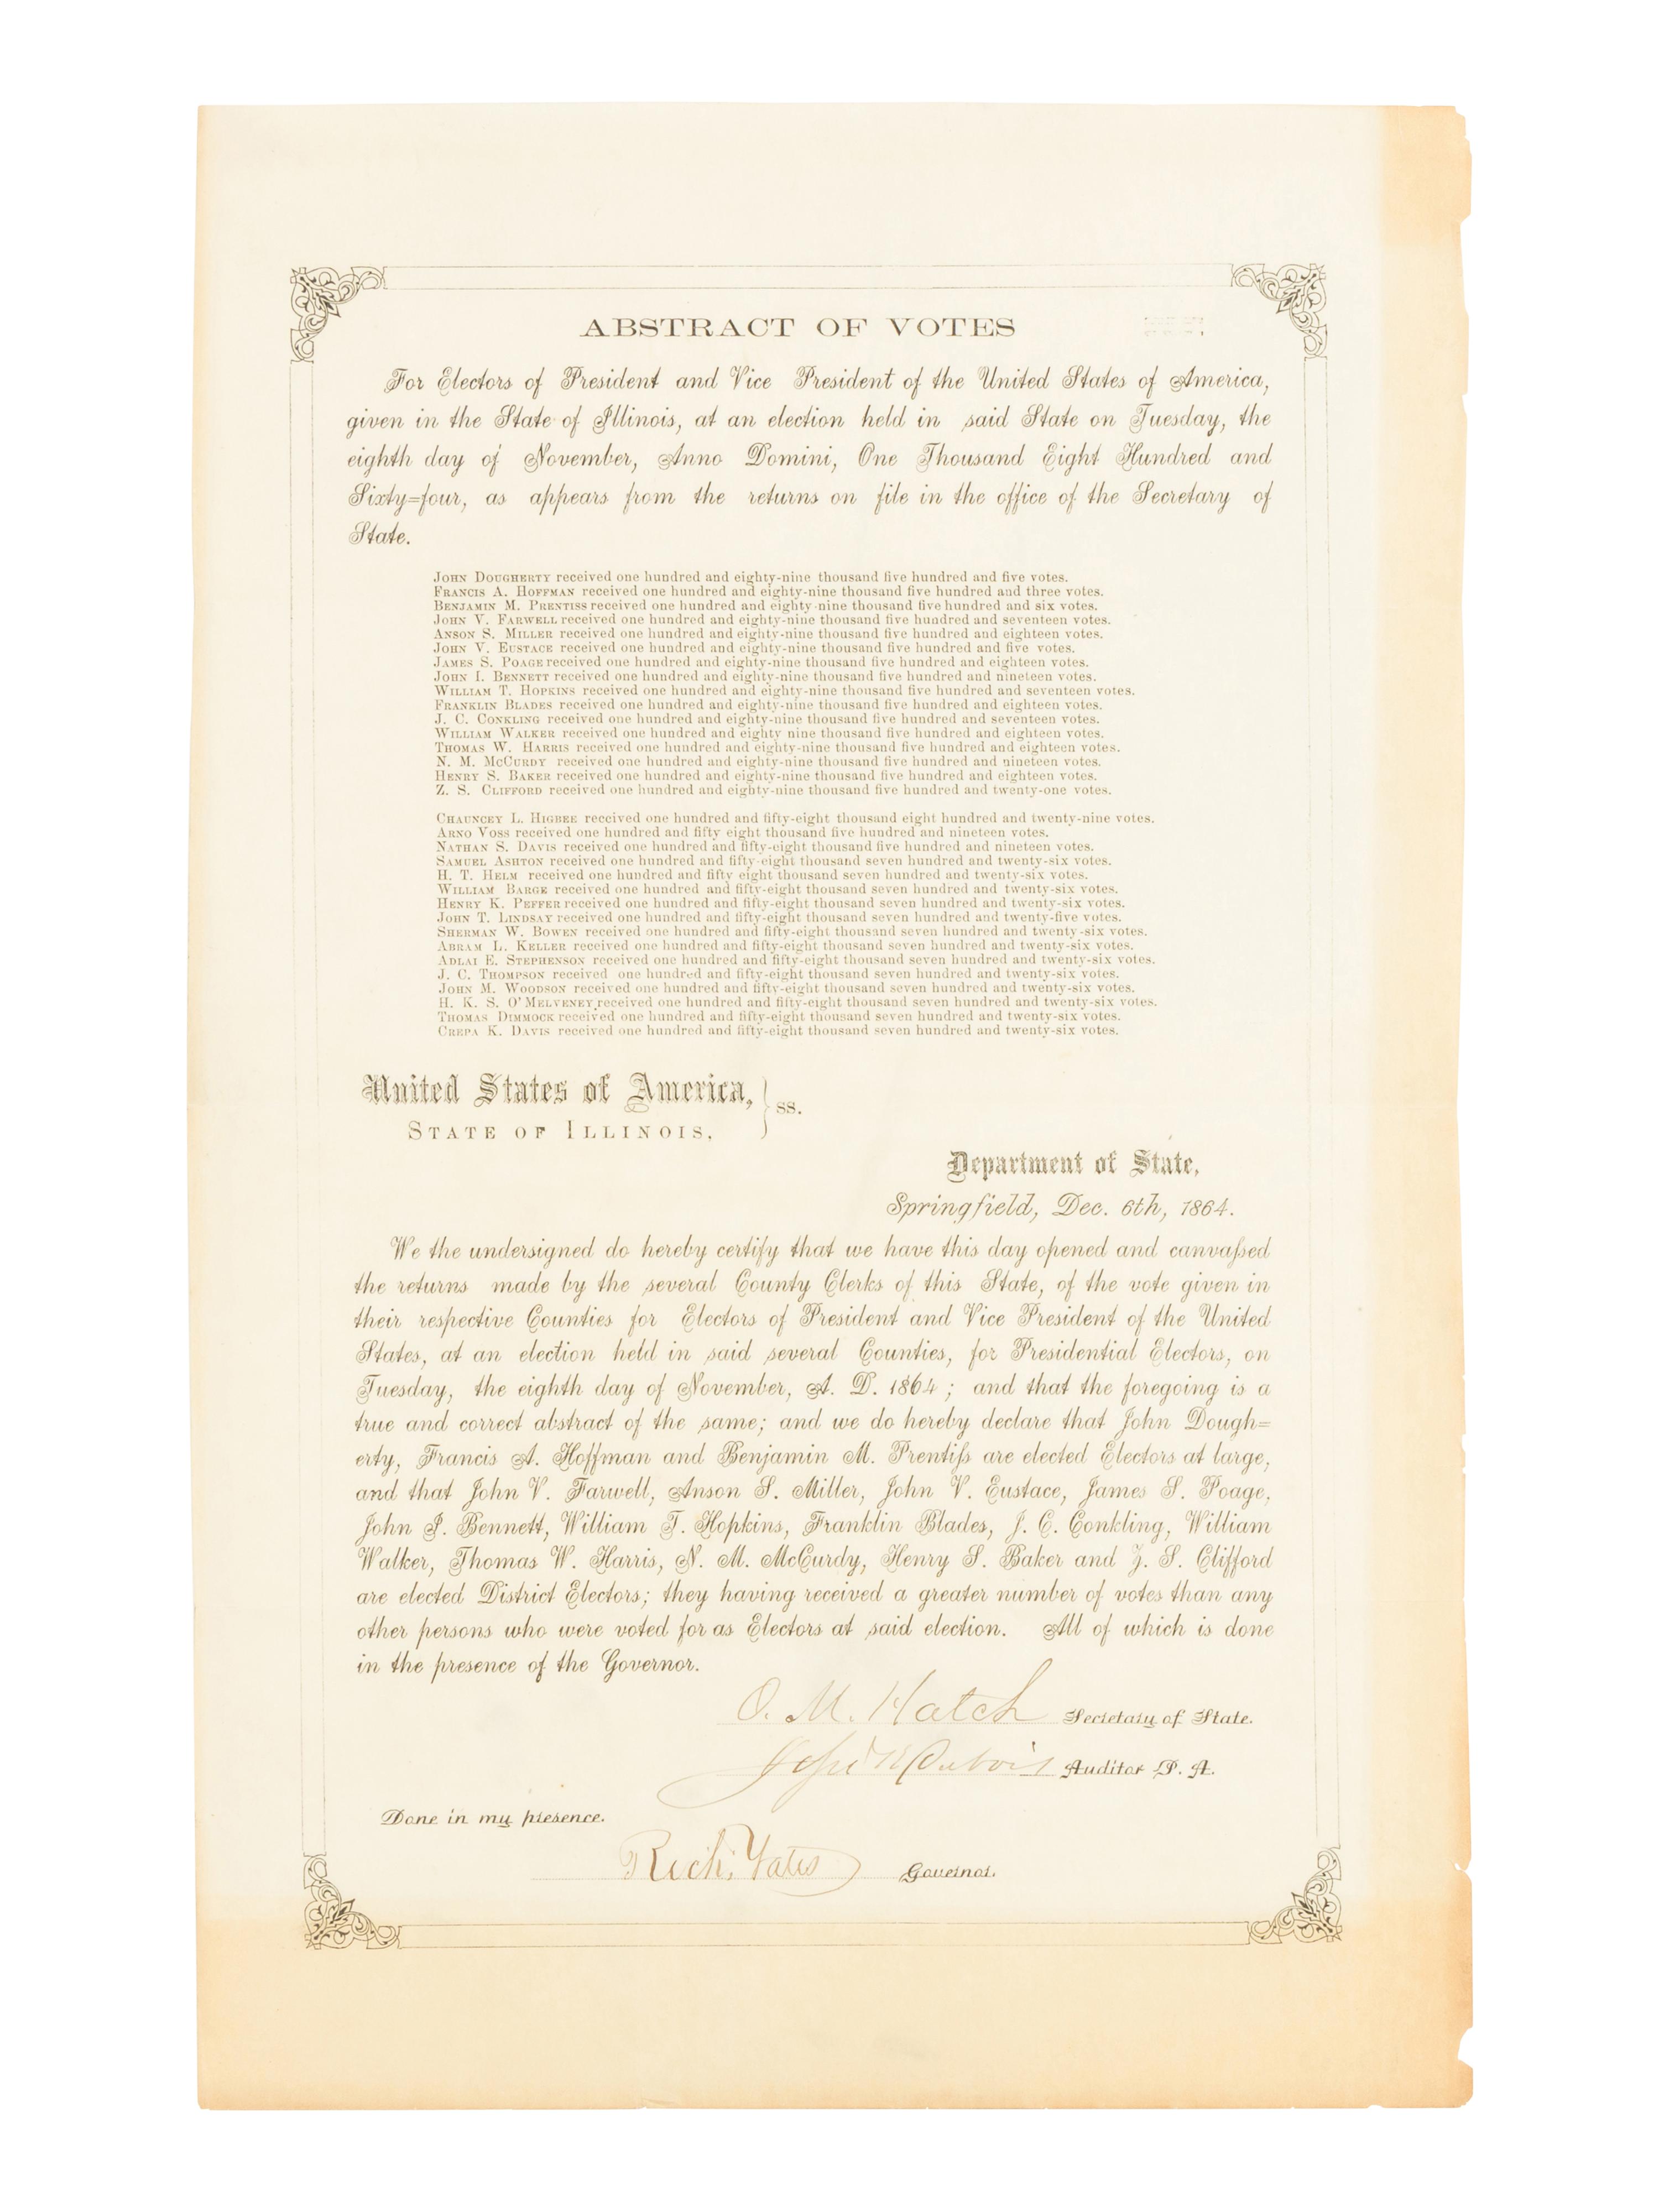 ABSTRACT OF VOTES
For Electors of President and Vice President of the United States of America,
given in the State of Illinois, at an election held in said State on Tuesday, the
eighth day of November, Anno Domini, One Thousand Eight Hundred and
Sixty=four, as appears from the returns on file in the office of the Secretary of
State.
JOHN DOUGHERTY received one hundred and eighty-nine thousand five hundred and five votes.
FRANCIS A. HOFFMAN received one hundred and eighty-nine thousand five hundred and three votes.
BENJAMIN M. PRENTISS received one hundred and eighty-nine thousand five hundred and six votes.
JOHN V. FARWELL received one hundred and eighty-nine thousand five hundred and seventeen votes.
ANSON S. MILLER received one hundred and eighty-nine thousand five hundred and eighteen votes.
JOHN V. EUSTACE received one hundred and eighty-nine thousand five hundred and five votes.
JAMES S. POAGE received one hundred and eighty-nine thousand five hundred and eighteen votes.
JOHN I. BENNETT received one hundred and eighty-nine thousand five hundred and nineteen votes.
WILLIAM T. HOPKINS received one hundred and eighty-nine thousand five hundred and seventeen votes.
FRANKLIN BLADES received one hundred and eighty-nine thousand five hundred and eighteen votes.
J. C. CONKLING received one hundred and eighty-nine thousand five hundred and seventeen votes.
WILLIAM WALKER received one hundred and eighty nine thousand five hundred and eighteen votes.
THOMAS W. HARRIS received one hundred and eighty-nine thousand five hundred and eighteen votes.
N. M. McCURDY received one hundred and eighty-nine thousand five hundred and nineteen votes.
HENRY S. BAKER received one hundred and eighty-nine thousand five hundred and eighteen votes.
Z. S. CLIFFORD received one hundred and eighty-nine thousand five hundred and twenty-one votes.
CHAUNCEY L. HIGBEE received one hundred and fifty-eight thousand eight hundred and twenty-nine votes.
ARNO VOSS received one hundred and fifty eight thousand five hundred and nineteen votes.
NATHAN S. DAVIS received one hundred and fifty-eight thousand five hundred and nineteen votes.
SAMUEL ASHTON received one hundred and fifty-eight thousand seven hundred and twenty-six votes.
H. T. HELM received one hundred and fifty eight thousand seven hundred and twenty-six votes.
WILLIAM BARGE received one hundred and fifty-eight thousand seven hundred and twenty-six votes.
HENRY K. PEFFER received one hundred and fifty-eight thousand seven hundred and twenty-six votes.
JOHN T. LINDSAY received one hundred and fifty-eight thousand seven hundred and twenty-five votes.
SHERMAN W. BOWEN received one hundred and fifty-eight thousand seven hundred and twenty-six votes.
ABRAM L. KELLER received one hundred and fifty-eight thousand seven hundred and twenty-six votes.
ADLAI E. STEPHENSON received one hundred and fifty-eight thousand seven hundred and twenty-six votes.
J. C. THOMPSON received one hundred and fifty-eight thousand seven hundred and twenty-six votes.
JOHN M. WOODSON received one hundred and fifty-eight thousand seven hundred and twenty-six votes.
H. K. S. O'MELVENEY received one hundred and fifty-eight thousand seven hundred and twenty-six votes.
THOMAS DIMMOCK received one hundred and fifty-eight thousand seven hundred and twenty-six votes.
CREPA K. DAVIS received one hundred and fifty-eight thousand seven hundred and twenty-six votes.
United States of America, } ss.
STATE OF ILLINOIS,
Department of State,
Springfield, Dec. 6th, 1864.
We the undersigned do hereby certify that we have this day opened and canvaſsed
the returns made by the several County Clerks of this State, of the vote given in
their respective Counties for Electors of President and Vice President of the United
States, at an election held in said several Counties, for Presidential Electors, on
Tuesday, the eighth day of November, A. D. 1864; and that the foregoing is a
true and correct abstract of the same; and we do hereby declare that John Dough=
erty, Francis A. Hoffman and Benjamin M. Prentiſs are elected Electors at large,
and that John V. Farwell, Anson S. Miller, John V. Eustace, James S. Poage,
John I. Bennett, William T. Hopkins, Franklin Blades, J. C. Conkling, William
Walker, Thomas W. Harris, N. M. McCurdy, Henry S. Baker and Z. S. Clifford
are elected District Electors; they having received a greater number of votes than any
other persons who were voted for as Electors at said election. All of which is done
in the presence of the Governor.
O. M. Hatch Secretary of State.
Jesse K Dubois Auditor P. A.
Done in my presence.
Rich. Yates Governor.